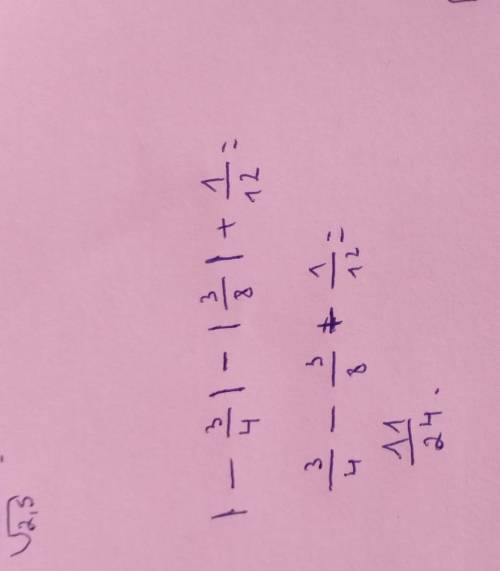 √2,5
|-3/4| - |3/8| + 1/12 =
3/4 - 3/8 + 1/12 =
11/24.